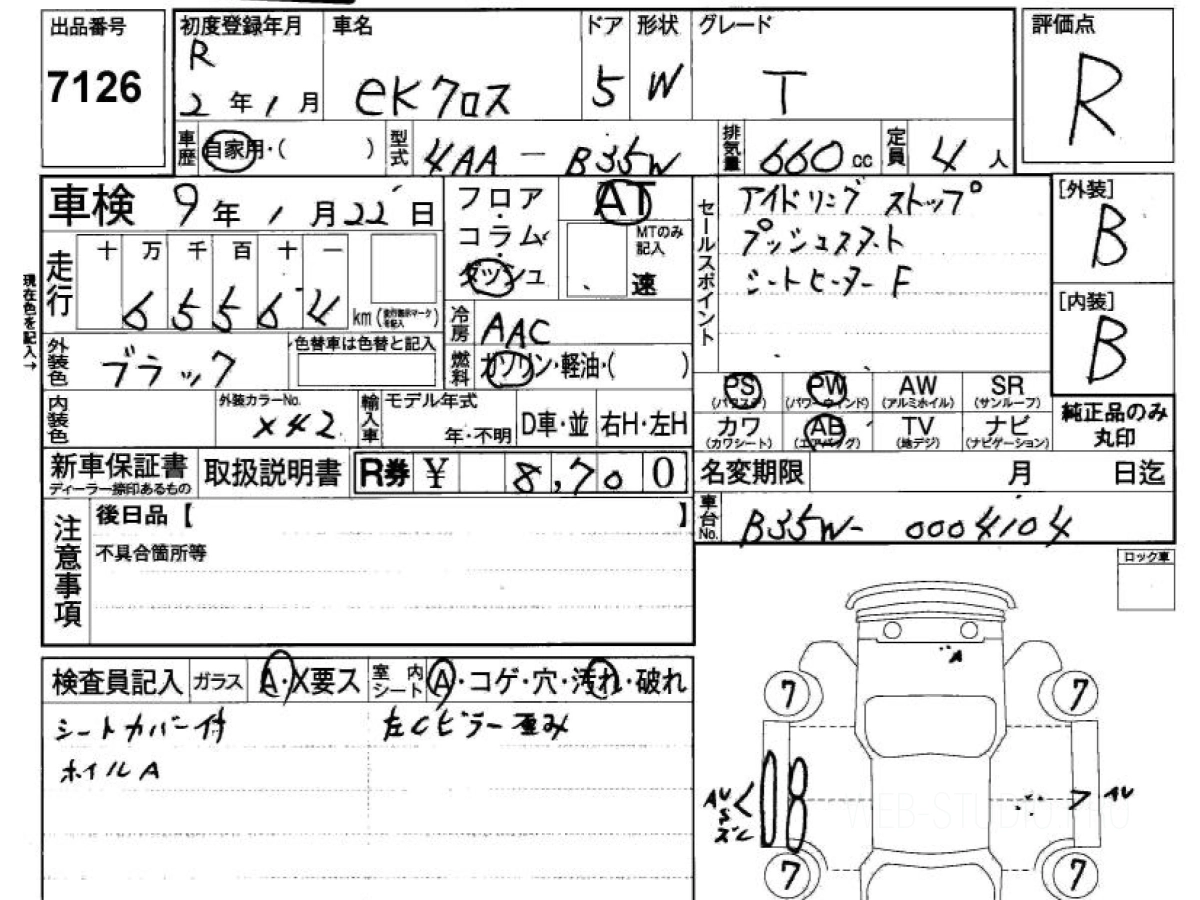 出品番号
7126
初度登録年月
R
2年1月
車名
eKクロス
ドア
5
形状
W
グレード
T
評価点
R
車歴
自家用・( )
型式
4AA-B35W
排気量
660cc
定員
4人
車検
9年1月22日
フロア・コラム・ダッシュ
AT
MTのみ記入
速
セールスポイント
アイドリングストップ
プッシュスタート
シートヒーターF
[外装]
B
[内装]
B
現在色を記入→
走行
十 万 千 百 十 一
6 5 5 6 4
km(走行表示マークを記入)
冷房
AAC
燃料
ガソリン・軽油・( )
外装色
ブラック
色替車は色替と記入
内装色
外装カラーNo.
X42
輸入車
モデル年式
年・不明
D車・並
右H・左H
PS
(パワステ)
PW
(パワーウインド)
AW
(アルミホイル)
SR
(サンルーフ)
カワ
(カワシート)
AB
(エアバッグ)
TV
(地デジ)
ナビ
(ナビゲーション)
純正品のみ
丸印
新車保証書
ディーラー捺印あるもの
取扱説明書
R券 ¥ 8,700
名変期限 月 日迄
車台No.
B35W-0004104
注意事項
後日品【 】
不具合箇所等
ロック車
検査員記入
ガラス
A・X要ス
室内シート
A・コゲ・穴・汚れ・破れ
シートカバー付
左Cピラー歪み
ホイルA
A
7
7
AU
S
AU
7
7
WEB-STUDIO.PRO